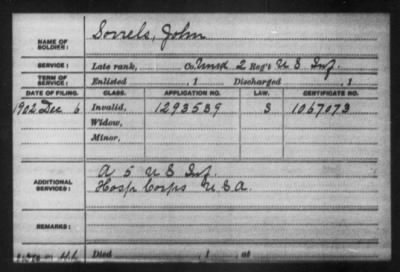 NAME OF SOLDIER: Sorrels, John
SERVICE: Late rank, Co. Unas'd 2 Reg't U S Inf.
TERM OF SERVICE: Enlisted , 1 Discharged , 1
DATE OF FILING. CLASS. APPLICATION NO. LAW. CERTIFICATE NO.
1902 Dec 6 Invalid, 1293589 S 1067073
Widow,
Minor,
ADDITIONAL SERVICES: A 5 U S Inf.
Hosp Corps U.S.A.
REMARKS:
Died , 1 , at